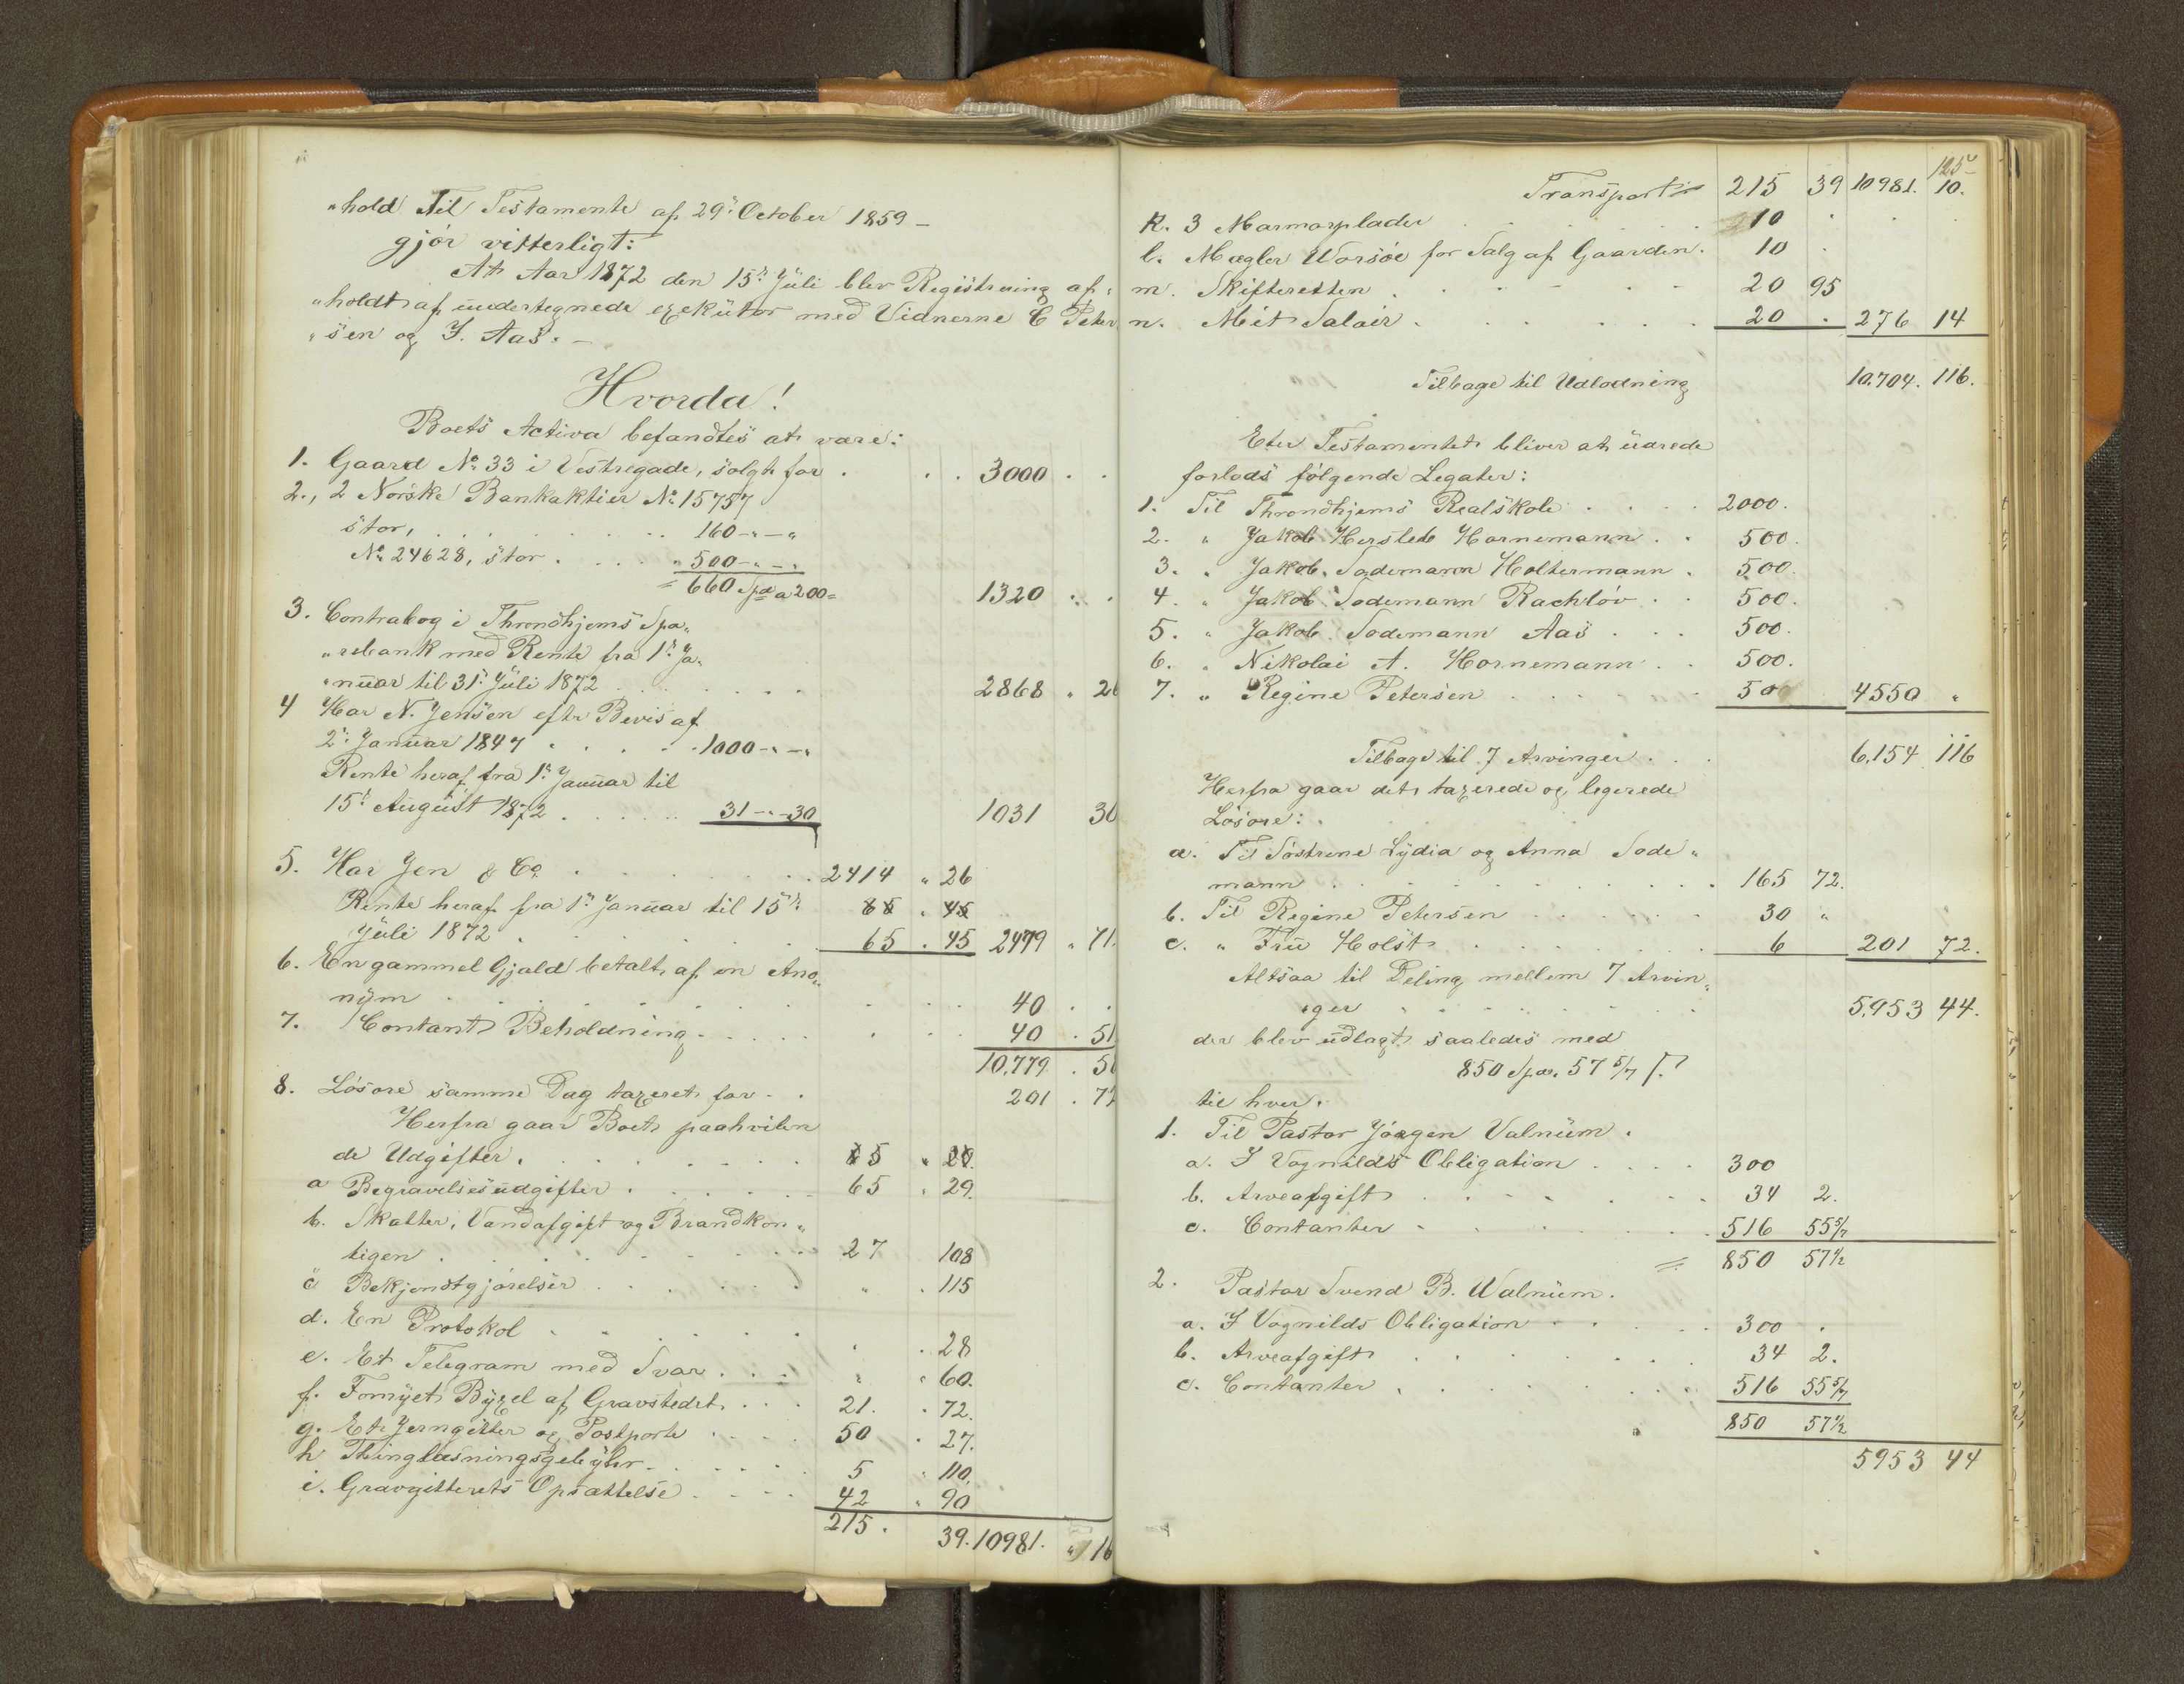 "hold Til Testamente af 29de October 1859 –
gjør vitterligt:
At Aar 1872 den 15de Juli blev Registrering af"
"holdt af undertegnede exekutor med Vidnerne C Peter
"sen og J. Aas. –
Hvorda!
Boets Activa befandtes at være:
1. Gaard No 33 i Vestregade, solgt for . . . 3000 . .
2., 2 Norske Bankaktier No 15757
stor, . . . . . . 160 – " – "
No 24628, stor . . . . " 500 – " – "
= 660 Spd a 200 = 1320 " .
3. Contrabog i Throndhjems Spa"
"rebank med Rente fra 1ste Ja"
"nuar til 31te Juli 1872 . . . . . . 2868 " 26
4 Har N. Jensen efter Bevis af
2den Januar 1847 . . . . . 1000 – " – "
Rente heraf fra 1ste Januar til
15de August 1872 . . . . . . 31 – " – 30 1031 30
5. Har Jen & Co. . . . . . . . 2414 " 26
Rente heraf fra 1ste Januar til 15de 65 . 45
Juli 1872 . . . . . . . 65 . 45 2479 " 71.
6. En gammel Gjæld betalt af en Ano"
nÿm . . . . . . . . . . 40 . .
7. Contant Beholdning . . . . . . . 40 . 51
10,779 . 5
8. Løsøre samme Dag taxeret for – . 201 . 72
Herfra gaar Boets paahvilen
de Udgifter. . . . . . . . 65 " 29.
a Begravelsesudgifter . . . . . . 65 . 29.
b. Skatter, Vandafgift og Brandkon"
tigen . . . . . . . . . 27 108
c Bekjendtgjørelser . . . . . . " . 115
d. En Protokol . . . . . . . . . 28
e. Et Telegram med Svar . . . . " " 60.
f. Fornÿet Bÿxel af Gravstedet . . . 21. . 72.
g. Et Jerngitter og Postporto . . . . 50 . 27.
h Thinglæsningsgebÿhr . . . . . . 5 . 110.
i. Gravgitterets Opsættelse . . . . 42 " 90
215. 39. 10981. " 116
125
Transport 215 39 10981. 10.
k. 3 Marmorplader . . . . . . 10 . . .
l. Mægler Worsøe for Salg af Gaarden. 10 .
m. Skifteretten . . . – . – . 20 95
n. Mit Salair . . . . . . . 20 . 276 14
Tilbage til Udlodning 10,704. 116.
Efter Testamentet bliver at udrede
forlods følgende Legater:
1. Til Throndhjems Realskole . . . . 2000.
2. " Jakob Hersleb Hornemann . . 500.
3. " Jakob Sodemann Holtermann . 500.
4. " Jakob Sodemann Rachløv . . 500.
5. " Jakob Sodemann Aas . . . 500.
6. " Nikolai A. Hornemann . . 500.
7. " Regine Petersen . . . . . . 50 4550 "
Tilbage til 7 Arvinger . . . 6,154 116
Herfra gaar det taxerede og legerede
Løsøre: .
a. Til Søstrene Lÿdia og Anna Sode"
mann . . . . . . . . . . 165 72.
b. Til Regine Petersen . . . . . . 30 "
c. " Fru Holst . . . . . . . 6 201 72.
Altsaa til Deling mellem 7 Arvin"
"ger . . . . . . . . 5,953 44.
der blev udlagt saaledes med
850 Spd. 57 5/7 ß
til hver.
1. Til Pastor Jørgen Valnum.
a. I Vognilds Obligation . . . . 300
b. Arveafgift . . . . . . . 34 2.
c. Contanter . . . . . . . 516 55 5/7
= 850 57 1/2
2. Pastor Svend B. Walnum.
a. I Vognilds Obligation . . . . 300 .
b. Arveafgift . . . . . . . 34 2.
c. Contanter . . . . . . . 516 55 5/7
" 850 57 1/2
5953 44